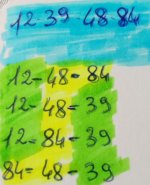 12-39-48-84
12-48-84
12-48-39
12-84-39
84-48-39